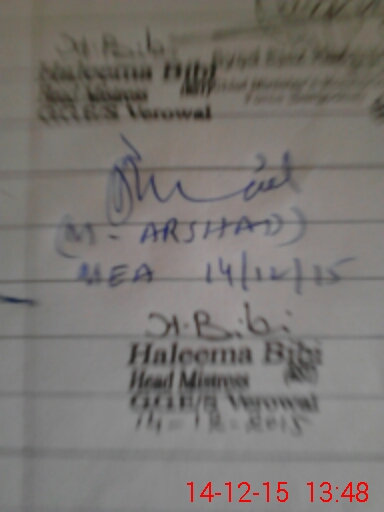 H. Bibi
Haleema Bibi
Head Mistress
G.G.E/S Verowal
(M. ARSHAD)
MEA 14/12/15
H. Bibi
Haleema Bibi
Head Mistress
G.G.E/S Verowal
14-12-2015
14-12-15 13:48